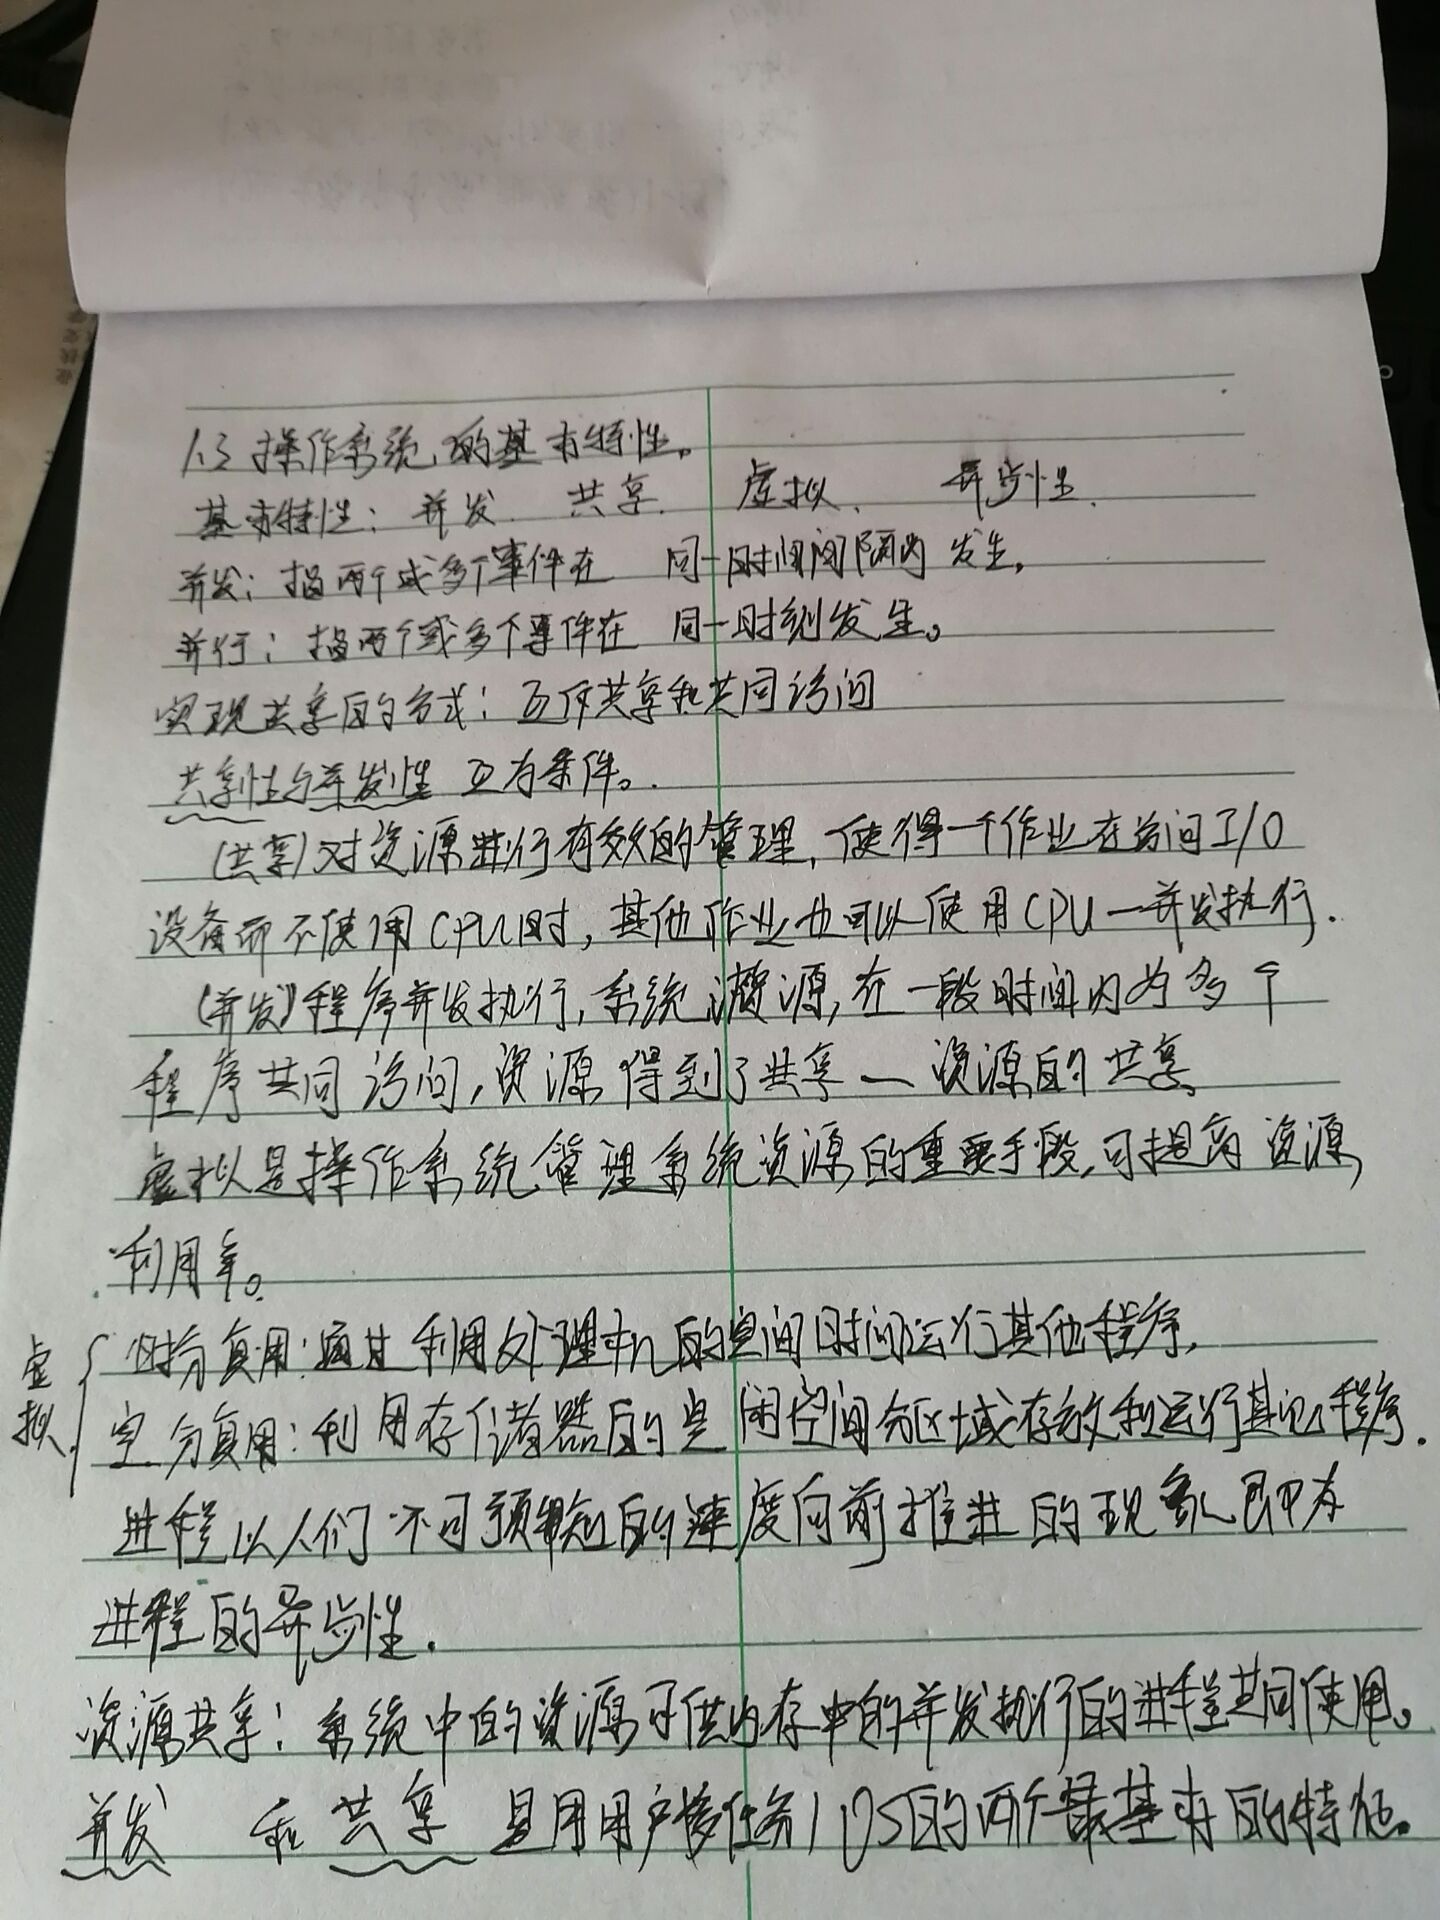 1.3 操作系统的基本特性。
基本特性：并发 共享. 虚拟、 异步性.
并发：指两个或多个事件在 同一时间间隔内发生。
并行：指两个或多个事件在 同一时刻发生。
实现共享的方式：互斥共享和共同访问
共享性与并发性 互为条件。
(共享)对资源进行有效的管理，使得一个作业在访问I/O
设备而不使用CPU时，其他作业也可以使用CPU—并发执行.
(并发)程序并发执行，系统资源，在一段时间内为多个
程序共同访问，资源得到了共享—资源的共享.
虚拟是操作系统管理系统资源的重要手段，可提高资源
利用率。
虚拟
时分复用：通过利用处理机的空间时间运行其他程序，
空分复用：利用存储器的空闲空间分区域存放和运行其他程序.
进程以人们不可预知的速度向前推进的现象即为
进程的异步性.
资源共享：系统中的资源可供内存中的并发执行的进程共同使用。
并发 和 共享 是用户多任务OS的两个最基本的特征。